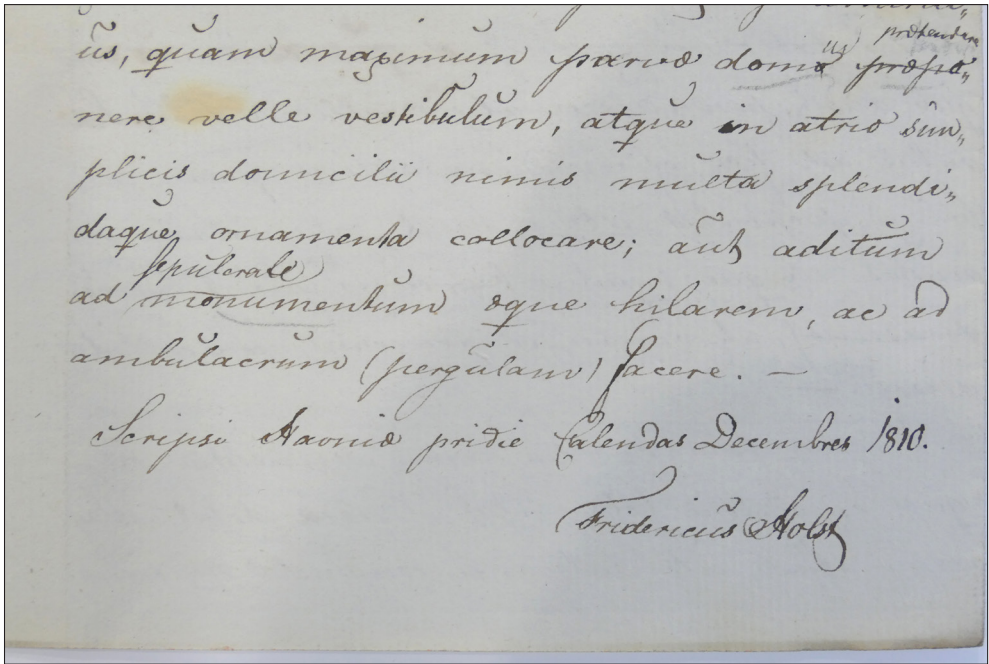 prætendere
us, quam maximum parvæ præpo=
nere velle vestibulum, atque in atrio sim=
plicis domicilii nimis multa splendi=
daque ornamenta collocare; aut aditum
sepulcrale
ad monumentum æque hilarem, ac ad
ambulacrum (pergulam) facere. —
Scripsi Havniæ pridie Calendas Decembres 1810.
Fridericus Holst